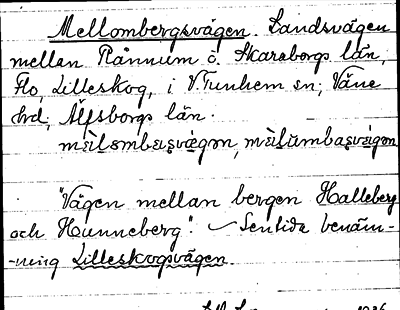 Mellombergsvägen. Landsvägen
mellan Rånnum o. Skaraborgs län,
Flo, Lilleskog, i V. Tunhem sn; Väne
hd; Älfsborgs län.
"Vägen mellan bergen Halleberg
och Hunneberg". Sentida benäm-
-ning Lilleskogsvägen.